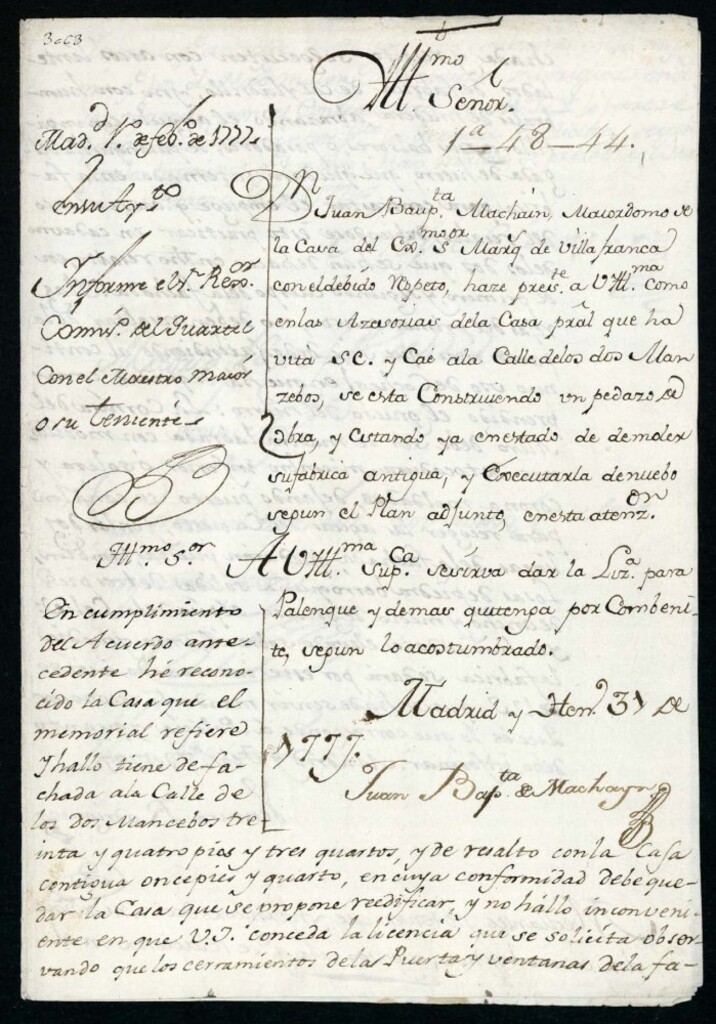 3003
Yllmo Señor.
1ª 48-44.
Madd 1º de febº de 1777
en su Ayto
Informe el Sr Rexor
Comisº del Quartel
con el Maestro maior
o su teniente
Dn Juan Baupta Machain, Maiordomo de
la Casa del Exmo Sor Marq de Villafranca
con el debido Respeto, haze preste a V.Yllma como
en las Azesorias de la Casa pral que ha
vita S E. y Cae a la Calle de los dos Man
zebos, se esta Construiendo un pedazo de
Obra, y estando ya en estado de demoler
su fabrica antigua, y Executarla de nuebo
segun el Plan adjunto, en esta atenzon.
A V.Yllma supca se sirva dar la Lizª para
Palenque y demas qu tenga por Combeni-
te, segun lo acostumbrado.
Madrid y Henº 31 de
1777.
Juan Bapta de Machayn
Yllmo Sor
En cumplimiento
del Acuerdo ante-
cedente hé recono-
cido la Casa que el
memorial refiere
y hallo tiene de fa-
chada a la Calle de
los dos Mancebos tre-
inta y quatro pies y tres quartos, y de resalto con la Casa
contigua once pies y quarto, en cuya conformidad debe que-
dar la Casa que se propone reedificar, y no hallo inconveni-
ente en que V.I. conceda la licencia que se solicita obser-
vando que los cerramientos de las Puertas y ventanas de la fa-